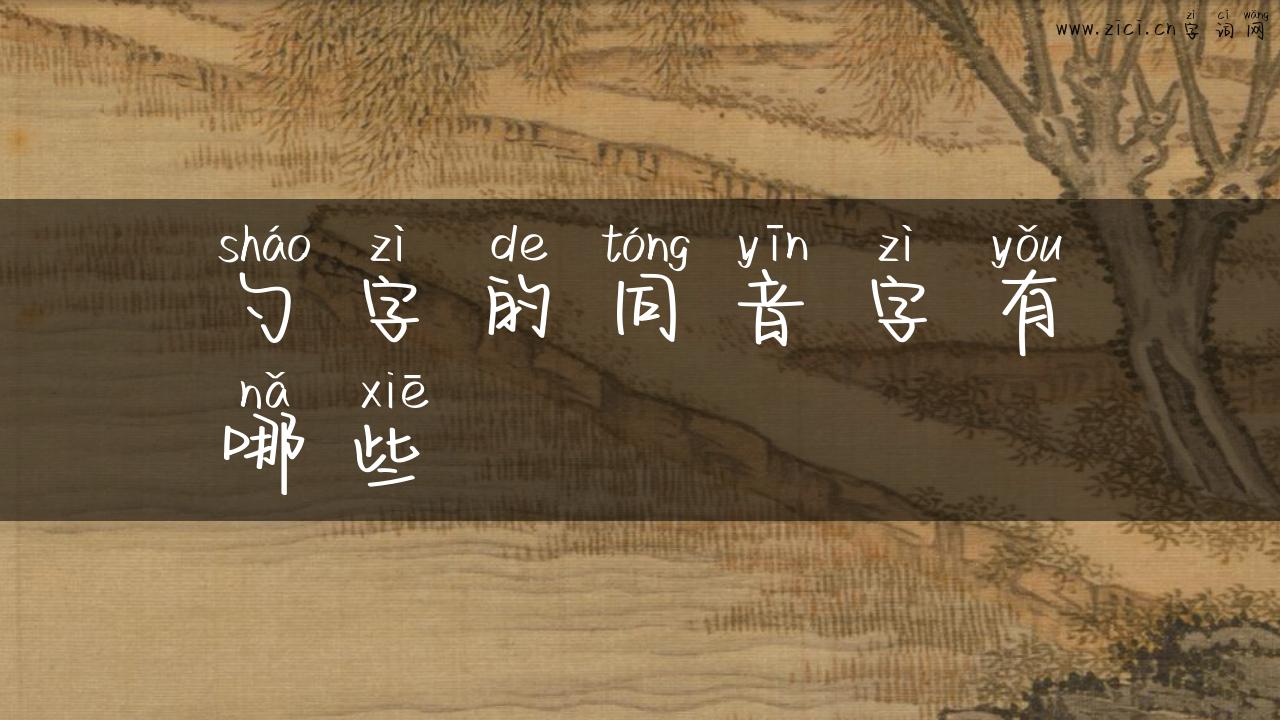 zì cí wǎng
www.zici.cn字词网
sháo zì de tóng yīn zì yǒu
勺字的同音字有
nǎ xiē
哪些